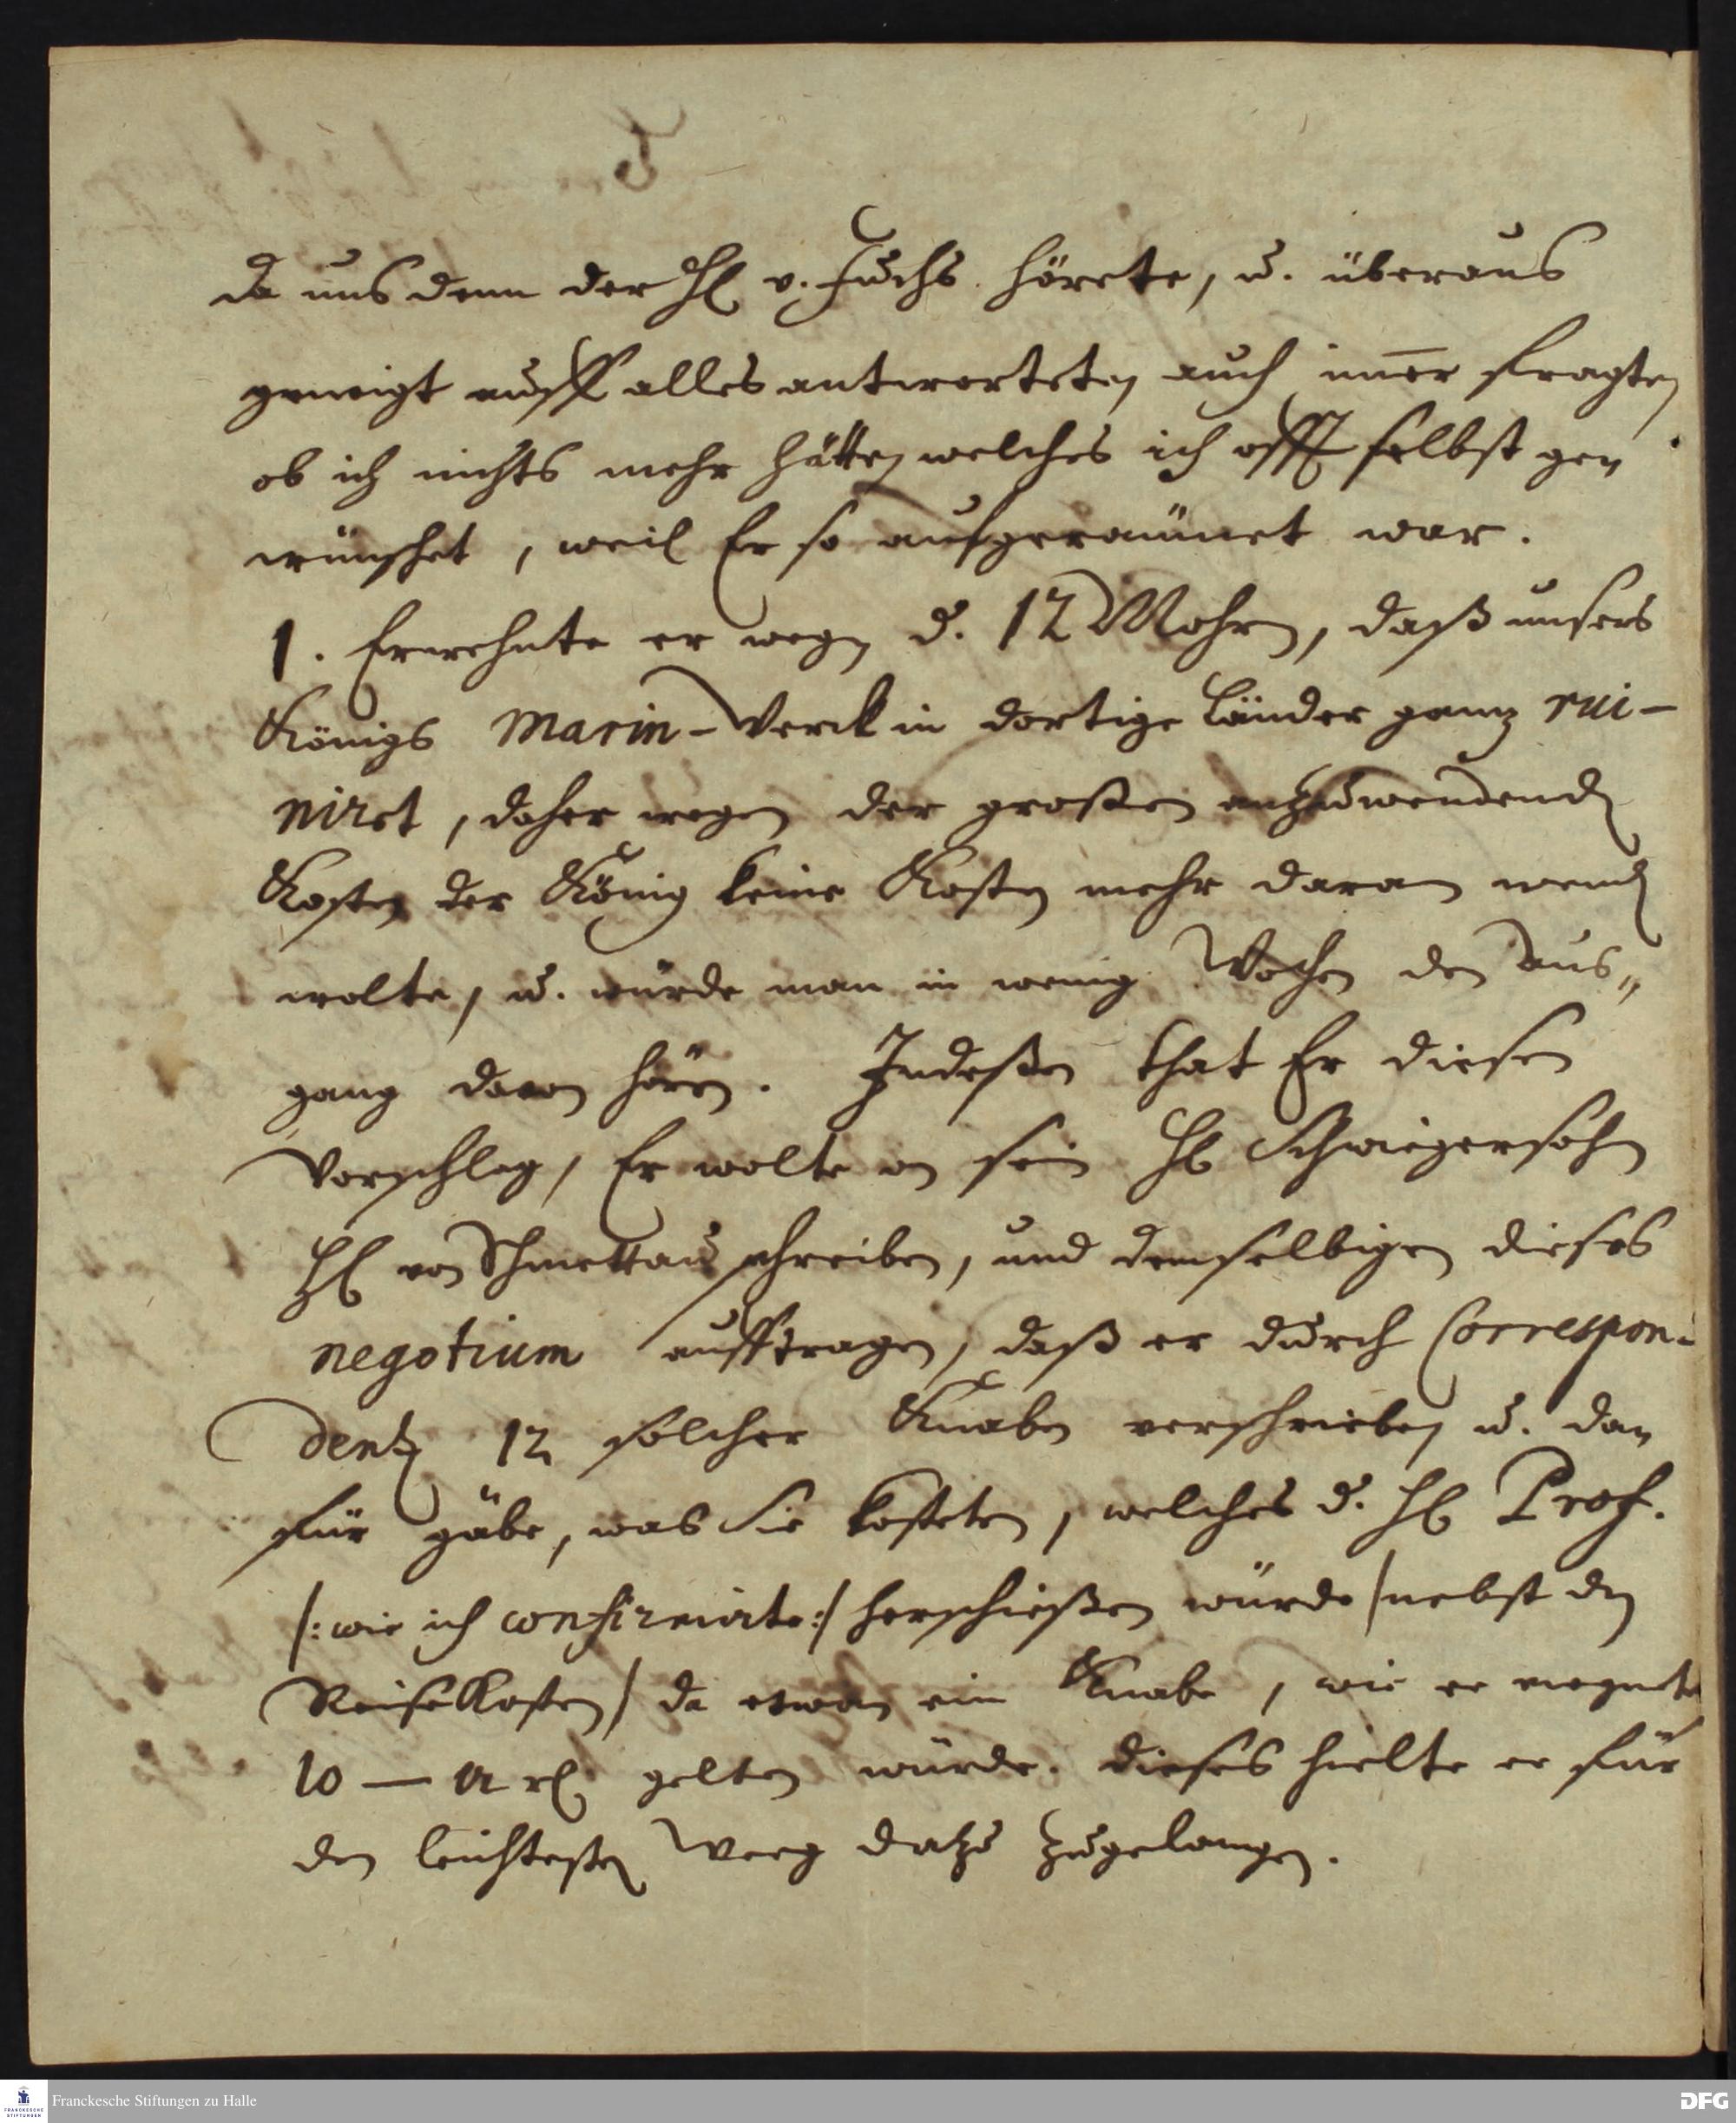 da uns denn der H. v. Fuchs hörete, u. überaus
geneigt auff alles antwortete, auch im̄er fragte,
ob ich nichts mehr hätte, welches ich offt selbst ge-
wünschet, weil Er so aufgeraümet war.
1. Erwehnte er wegen d. 12 Mohren, daß unsers
Königs Marin-Werck in dortige Länder gantz rui-
niret, daher wegen der großen anzuwendenden
Kosten der König keine Kosten mehr daran wenden
wolte, u. würde man in wenig Wochen den Aus„
gang davon hören. Indeßen that Er diesen
Vorschlag, Er wolte an sein H. Schwiegersohn
H. von Schmettau schreiben, und demselbigen dieses
negotium aufftragen, daß er durch Correspon-
dentz 12 solcher Knaben verschrieben u. da-
für gäbe, was Sie kosteten, welches d. H. Prof.
/: wie ich confirmirte :/ herschießen würde / nebst den
Reise Kosten / da etwan ein Knabe, wie er meynete
10 — 12 rl. gelten würde. dieses hielte er für
den leichtesten Weeg datzu zugelangen.
Franckesche Stiftungen zu Halle
DFG